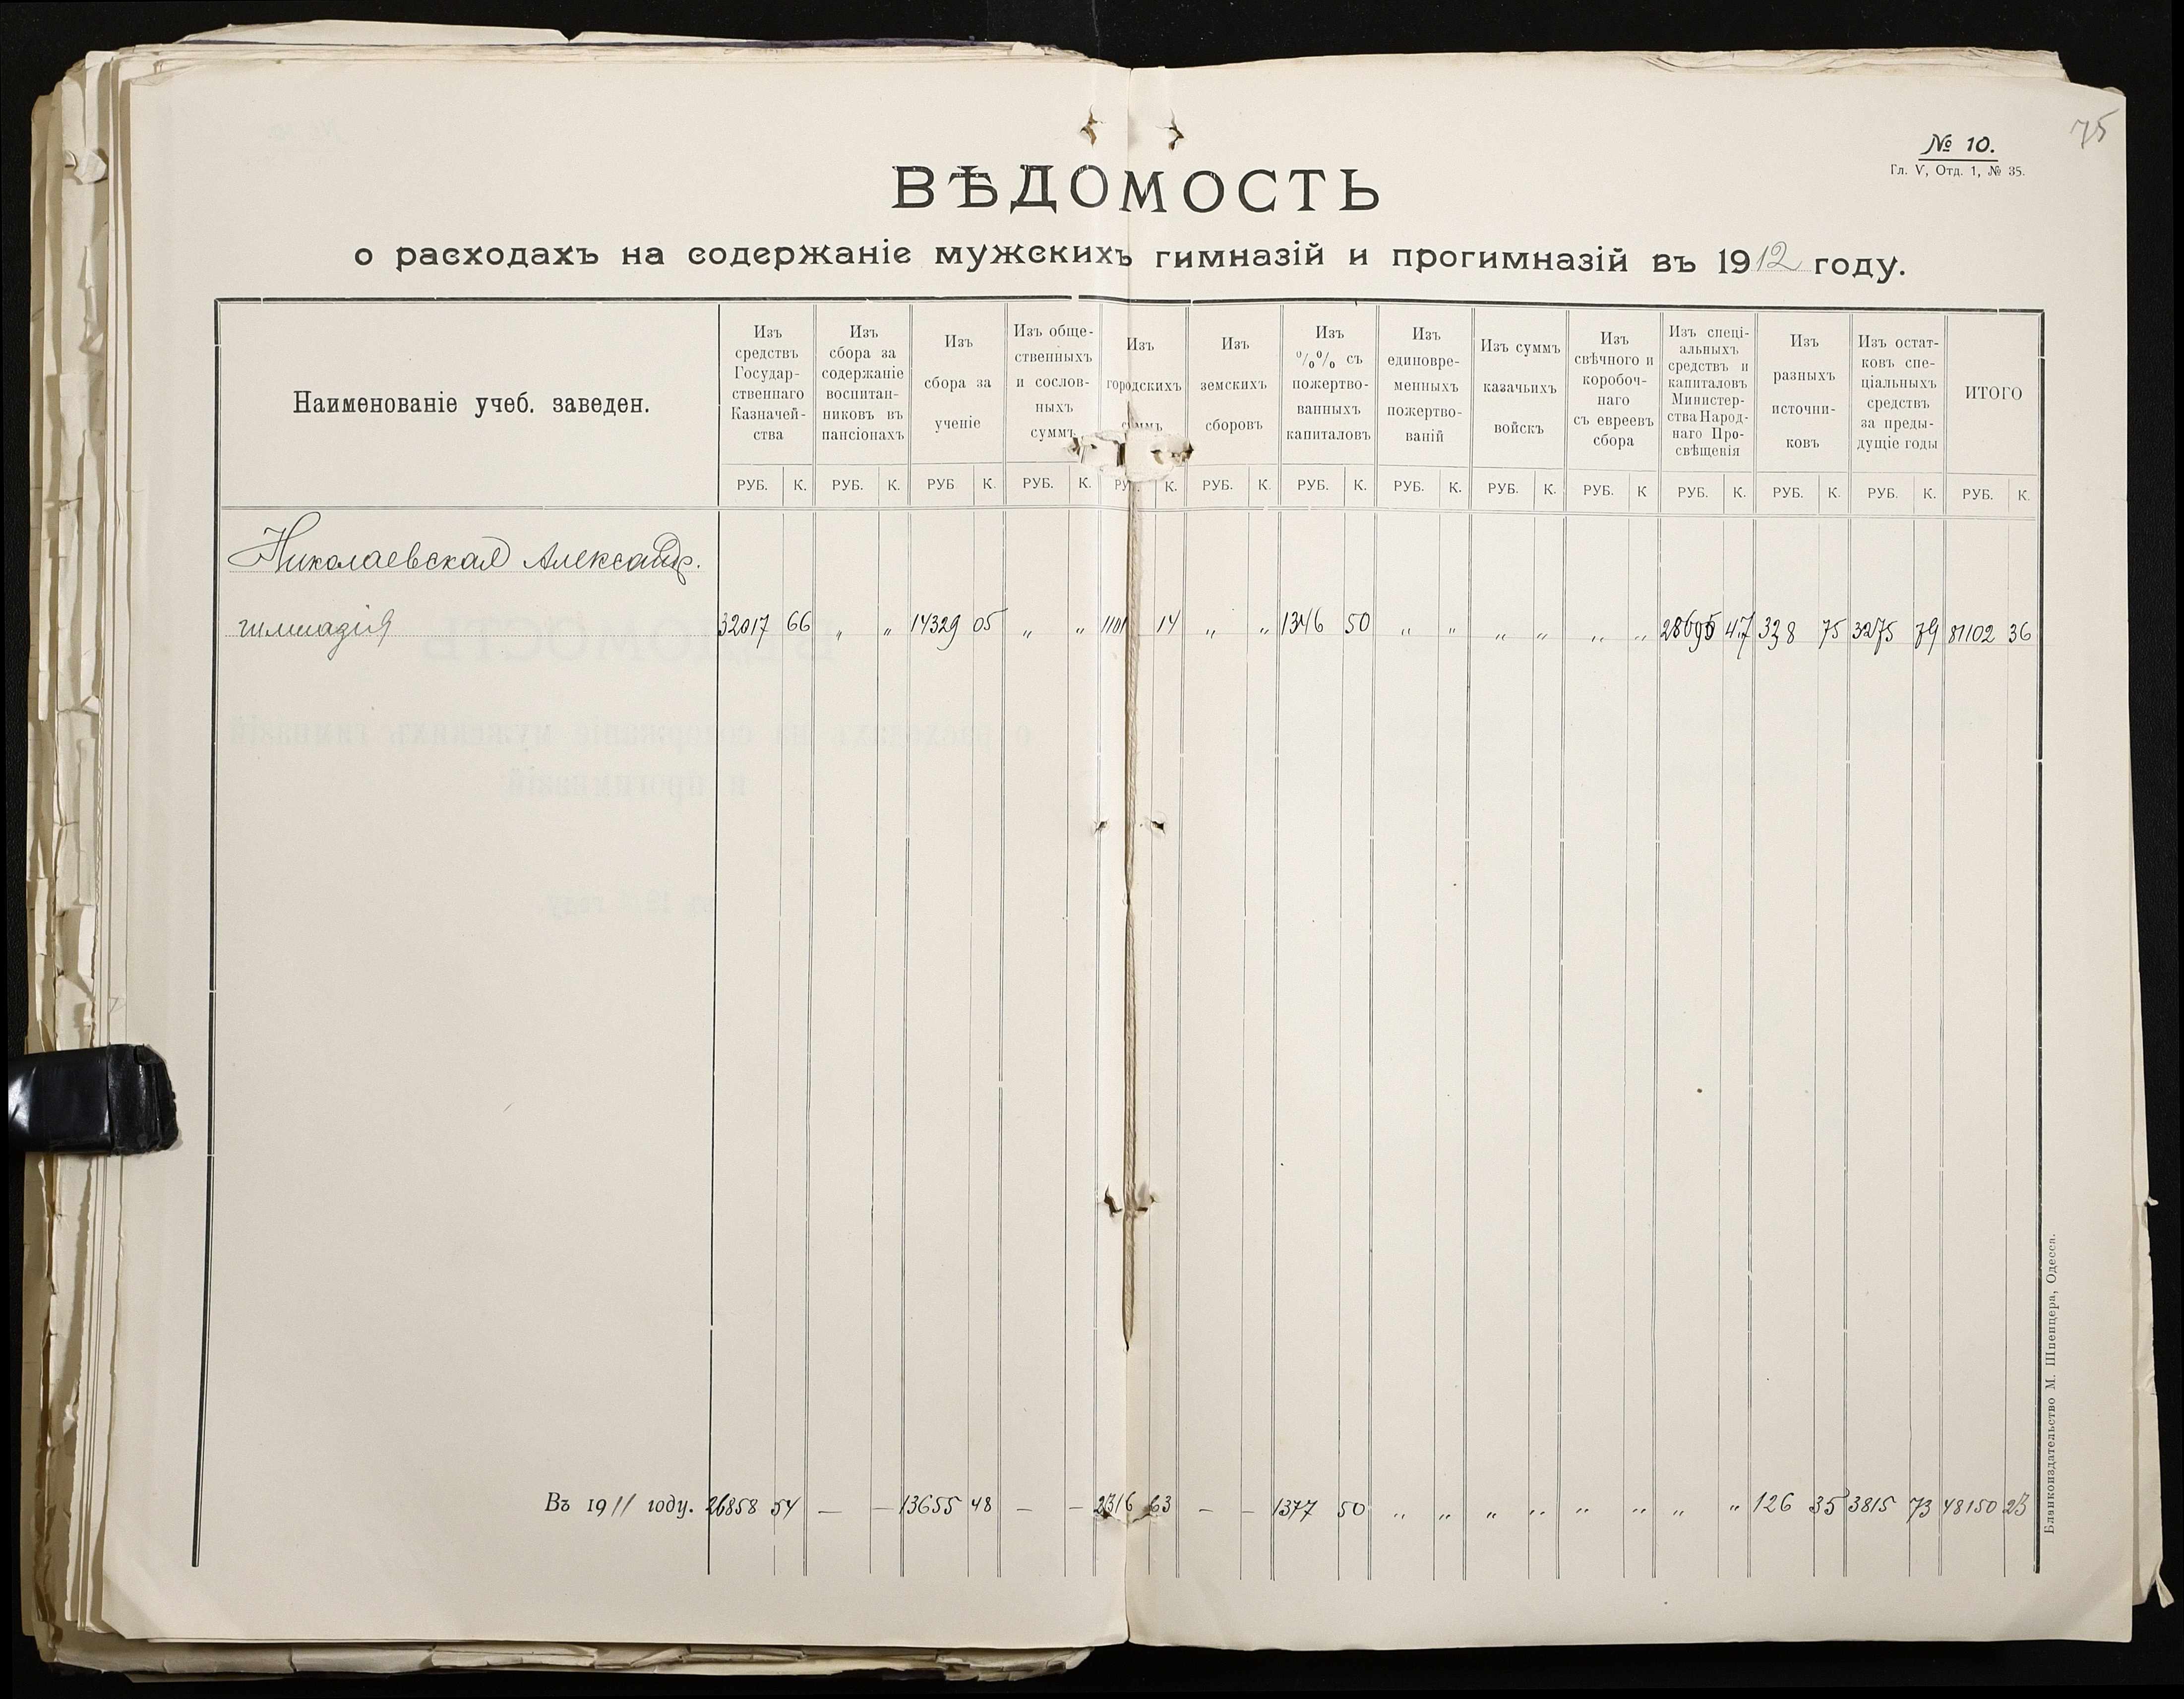 75
№ 10.
Гл. V, Отд. 1, № 35.
ВѢДОМОСТЬ
о расходахъ на содержаніе мужскихъ гимназій и прогимназій въ 1912 году.
Наименованіе учеб. заведен.
Изъ
средствъ
Государ-
ственнаго
Казначей-
ства
Изъ
сбора за
содержаніе
воспитан-
никовъ въ
пансіонахъ
Изъ
сбора за
ученіе
Изъ обще-
ственныхъ
и сослов-
ныхъ
суммъ
Изъ
городскихъ
суммъ
Изъ
земскихъ
сборовъ
Изъ
%% съ
пожертво-
ванныхъ
капиталовъ
Изъ
единовре-
менныхъ
пожертво-
ваній
Изъ суммъ
казачьихъ
войскъ
Изъ
свѣчного и
коробоч-
наго
съ евреевъ
сбора
Изъ спеці-
альныхъ
средствъ и
капиталовъ
Министер-
ства Народ-
наго Про-
свѣщенія
Изъ
разныхъ
источни-
ковъ
Изъ остат-
ковъ спе-
ціальныхъ
средствъ
за преды-
дущіе годы
ИТОГО
РУБ. К. РУБ. К. РУБ К. РУБ. К. РУБ. К. РУБ. К. РУБ. К. РУБ. К. РУБ. К. РУБ. К РУБ. К. РУБ. К. РУБ. К. РУБ. К.
Николаевская Александр.
гимназія 32017 66 „ „ 14329 05 „ „ 1101 14 „ „ 1346 50 „ „ „ „ „ „ 28695 47 338 75 3275 79 81102 36
Въ 1911 году. 26858 54 — — 13655 48 — — 2316 63 — — 1377 50 „ „ „ „ „ „ „ „ 126 35 3815 73 48150 23
Бланкоиздательство М. Шпенцера, Одесса.